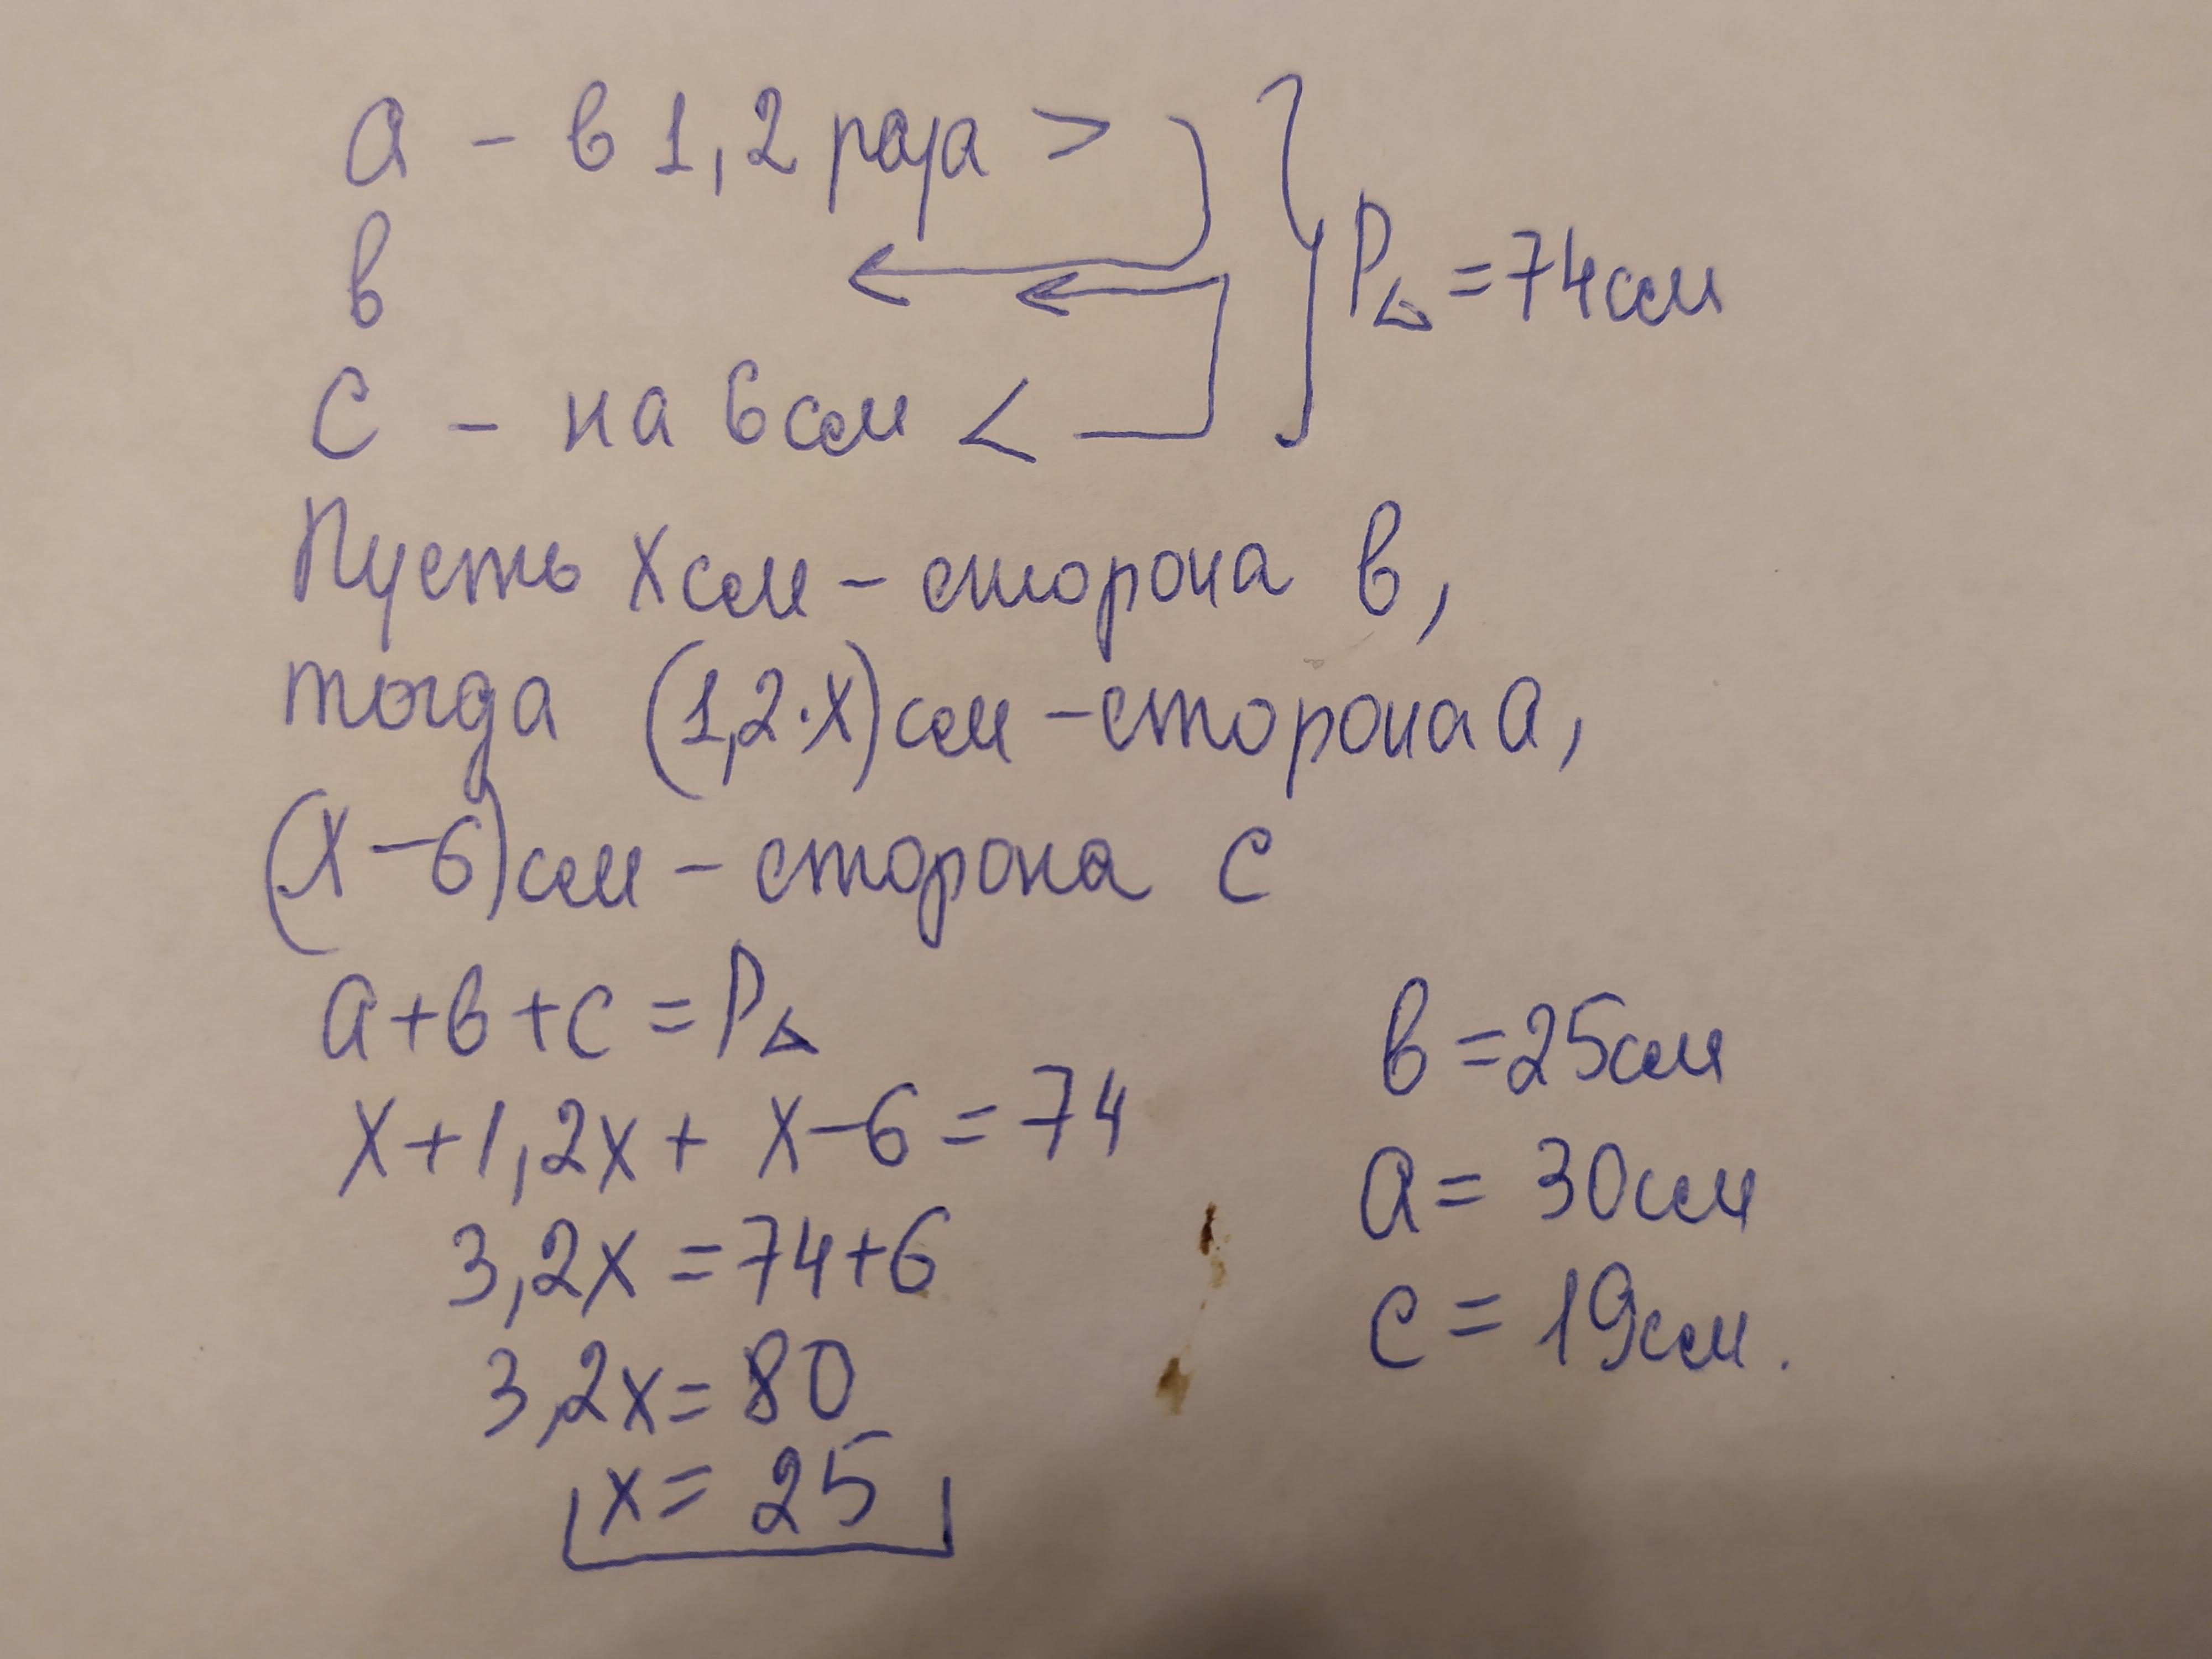 а - в 1,2 раза >
в
с - на 6 см <
P△ = 74 см
Пусть x см - сторона в,
тогда (1,2·x) см - сторона а,
(x - 6) см - сторона с
а + в + с = P△
x + 1,2x + x - 6 = 74
3,2x = 74 + 6
3,2x = 80
x = 25
в = 25 см
а = 30 см
с = 19 см.